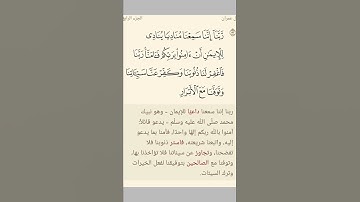 ل عمران الجزء الرابع
رَّبَّنَآ إِنَّنَا سَمِعۡنَا مُنَادِيٗا يُنَادِي
لِلۡإِيمَٰنِ أَنۡ ءَامِنُواْ بِرَبِّكُمۡ فَـَٔامَنَّاۚ رَبَّنَا
فَٱغۡفِرۡ لَنَا ذُنُوبَنَا وَكَفِّرۡ عَنَّا سَيِّـَٔاتِنَا
وَتَوَفَّنَا مَعَ ٱلۡأَبۡرَارِ
ربنا إننا سمعنا داعيا للإيمان - وهو نبيك
محمد صلى الله عليه وسلم - يدعو قائلاً:
آمنوا بالله ربكم إلهًا واحدًا، فآمنا بما يدعو
إليه، واتبعنا شريعته، فاستر ذنوبنا فلا
تفضحنا، وتجاوز عن سيئاتنا فلا تؤاخذنا بها،
وتوفنا مع الصالحين بتوفيقنا لفعل الخيرات
وترك السيئات.